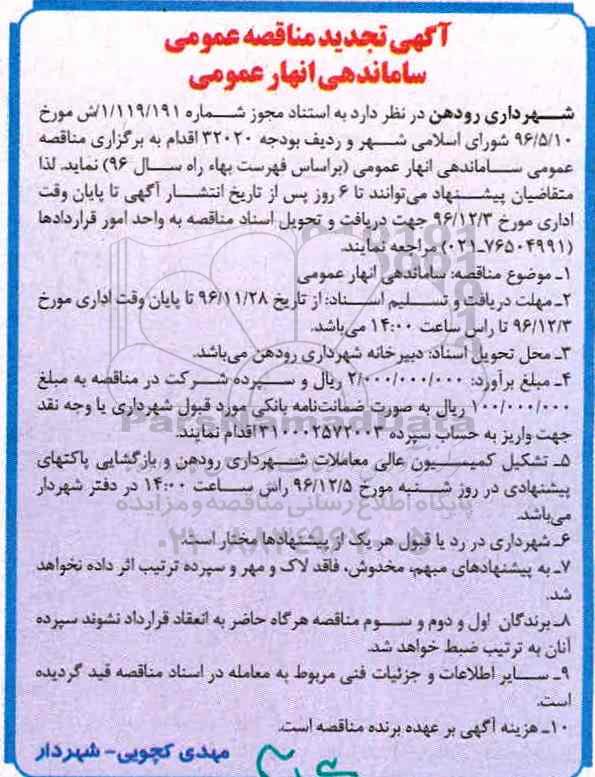 آگهی تجدید مناقصه عمومی
ساماندهی انهار عمومی
شهرداری رودهن در نظر دارد به استناد مجوز شماره ۱/۱۱۹/۱۹۱/ش مورخ
۹۶/۵/۱۰ شورای اسلامی شهر و ردیف بودجه ۳۲۰۲۰ اقدام به برگزاری مناقصه
عمومی ساماندهی انهار عمومی (براساس فهرست بهاء راه سال ۹۶) نماید. لذا
متقاضیان پیشنهاد می‌توانند تا ۶ روز پس از تاریخ انتشار آگهی تا پایان وقت
اداری مورخ ۹۶/۱۲/۳ جهت دریافت و تحویل اسناد مناقصه به واحد امور قراردادها
(۷۶۵۰۴۹۹۱-۰۲۱) مراجعه نمایند.
۱ـ موضوع مناقصه: ساماندهی انهار عمومی
۲ـ مهلت دریافت و تسلیم اسناد: از تاریخ ۹۶/۱۱/۲۸ تا پایان وقت اداری مورخ
۹۶/۱۲/۳ تا راس ساعت ۱۴:۰۰ می‌باشد.
۳ـ محل تحویل اسناد: دبیرخانه شهرداری رودهن می‌باشد.
۴ـ مبلغ برآورد: ۲/۰۰۰/۰۰۰/۰۰۰ ریال و سپرده شرکت در مناقصه به مبلغ
۱۰۰/۰۰۰/۰۰۰ ریال به صورت ضمانت‌نامه بانکی مورد قبول شهرداری یا وجه نقد
جهت واریز به حساب سپرده ۳۱۰۰۰۲۵۷۲۰۰۳ اقدام نمایند.
۵ـ تشکیل کمیسیون عالی معاملات شهرداری رودهن و بازگشایی پاکتهای
پیشنهادی در روز شنبه مورخ ۹۶/۱۲/۵ راس ساعت ۱۴:۰۰ در دفتر شهردار
می‌باشد.
۶ـ شهرداری در رد یا قبول هر یک از پیشنهادها مختار است.
۷ـ به پیشنهادهای مبهم، مخدوش، فاقد لاک و مهر و سپرده ترتیب اثر داده نخواهد
شد.
۸ـ برندگان اول و دوم و سوم مناقصه هرگاه حاضر به انعقاد قرارداد نشوند سپرده
آنان به ترتیب ضبط خواهد شد.
۹ـ سایر اطلاعات و جزئیات فنی مربوط به معامله در اسناد مناقصه قید گردیده
است.
۱۰ـ هزینه آگهی بر عهده برنده مناقصه است.
مهدی کچویی- شهردار
ParsNamadData
پایگاه اطلاع رسانی مناقصه و مزایده